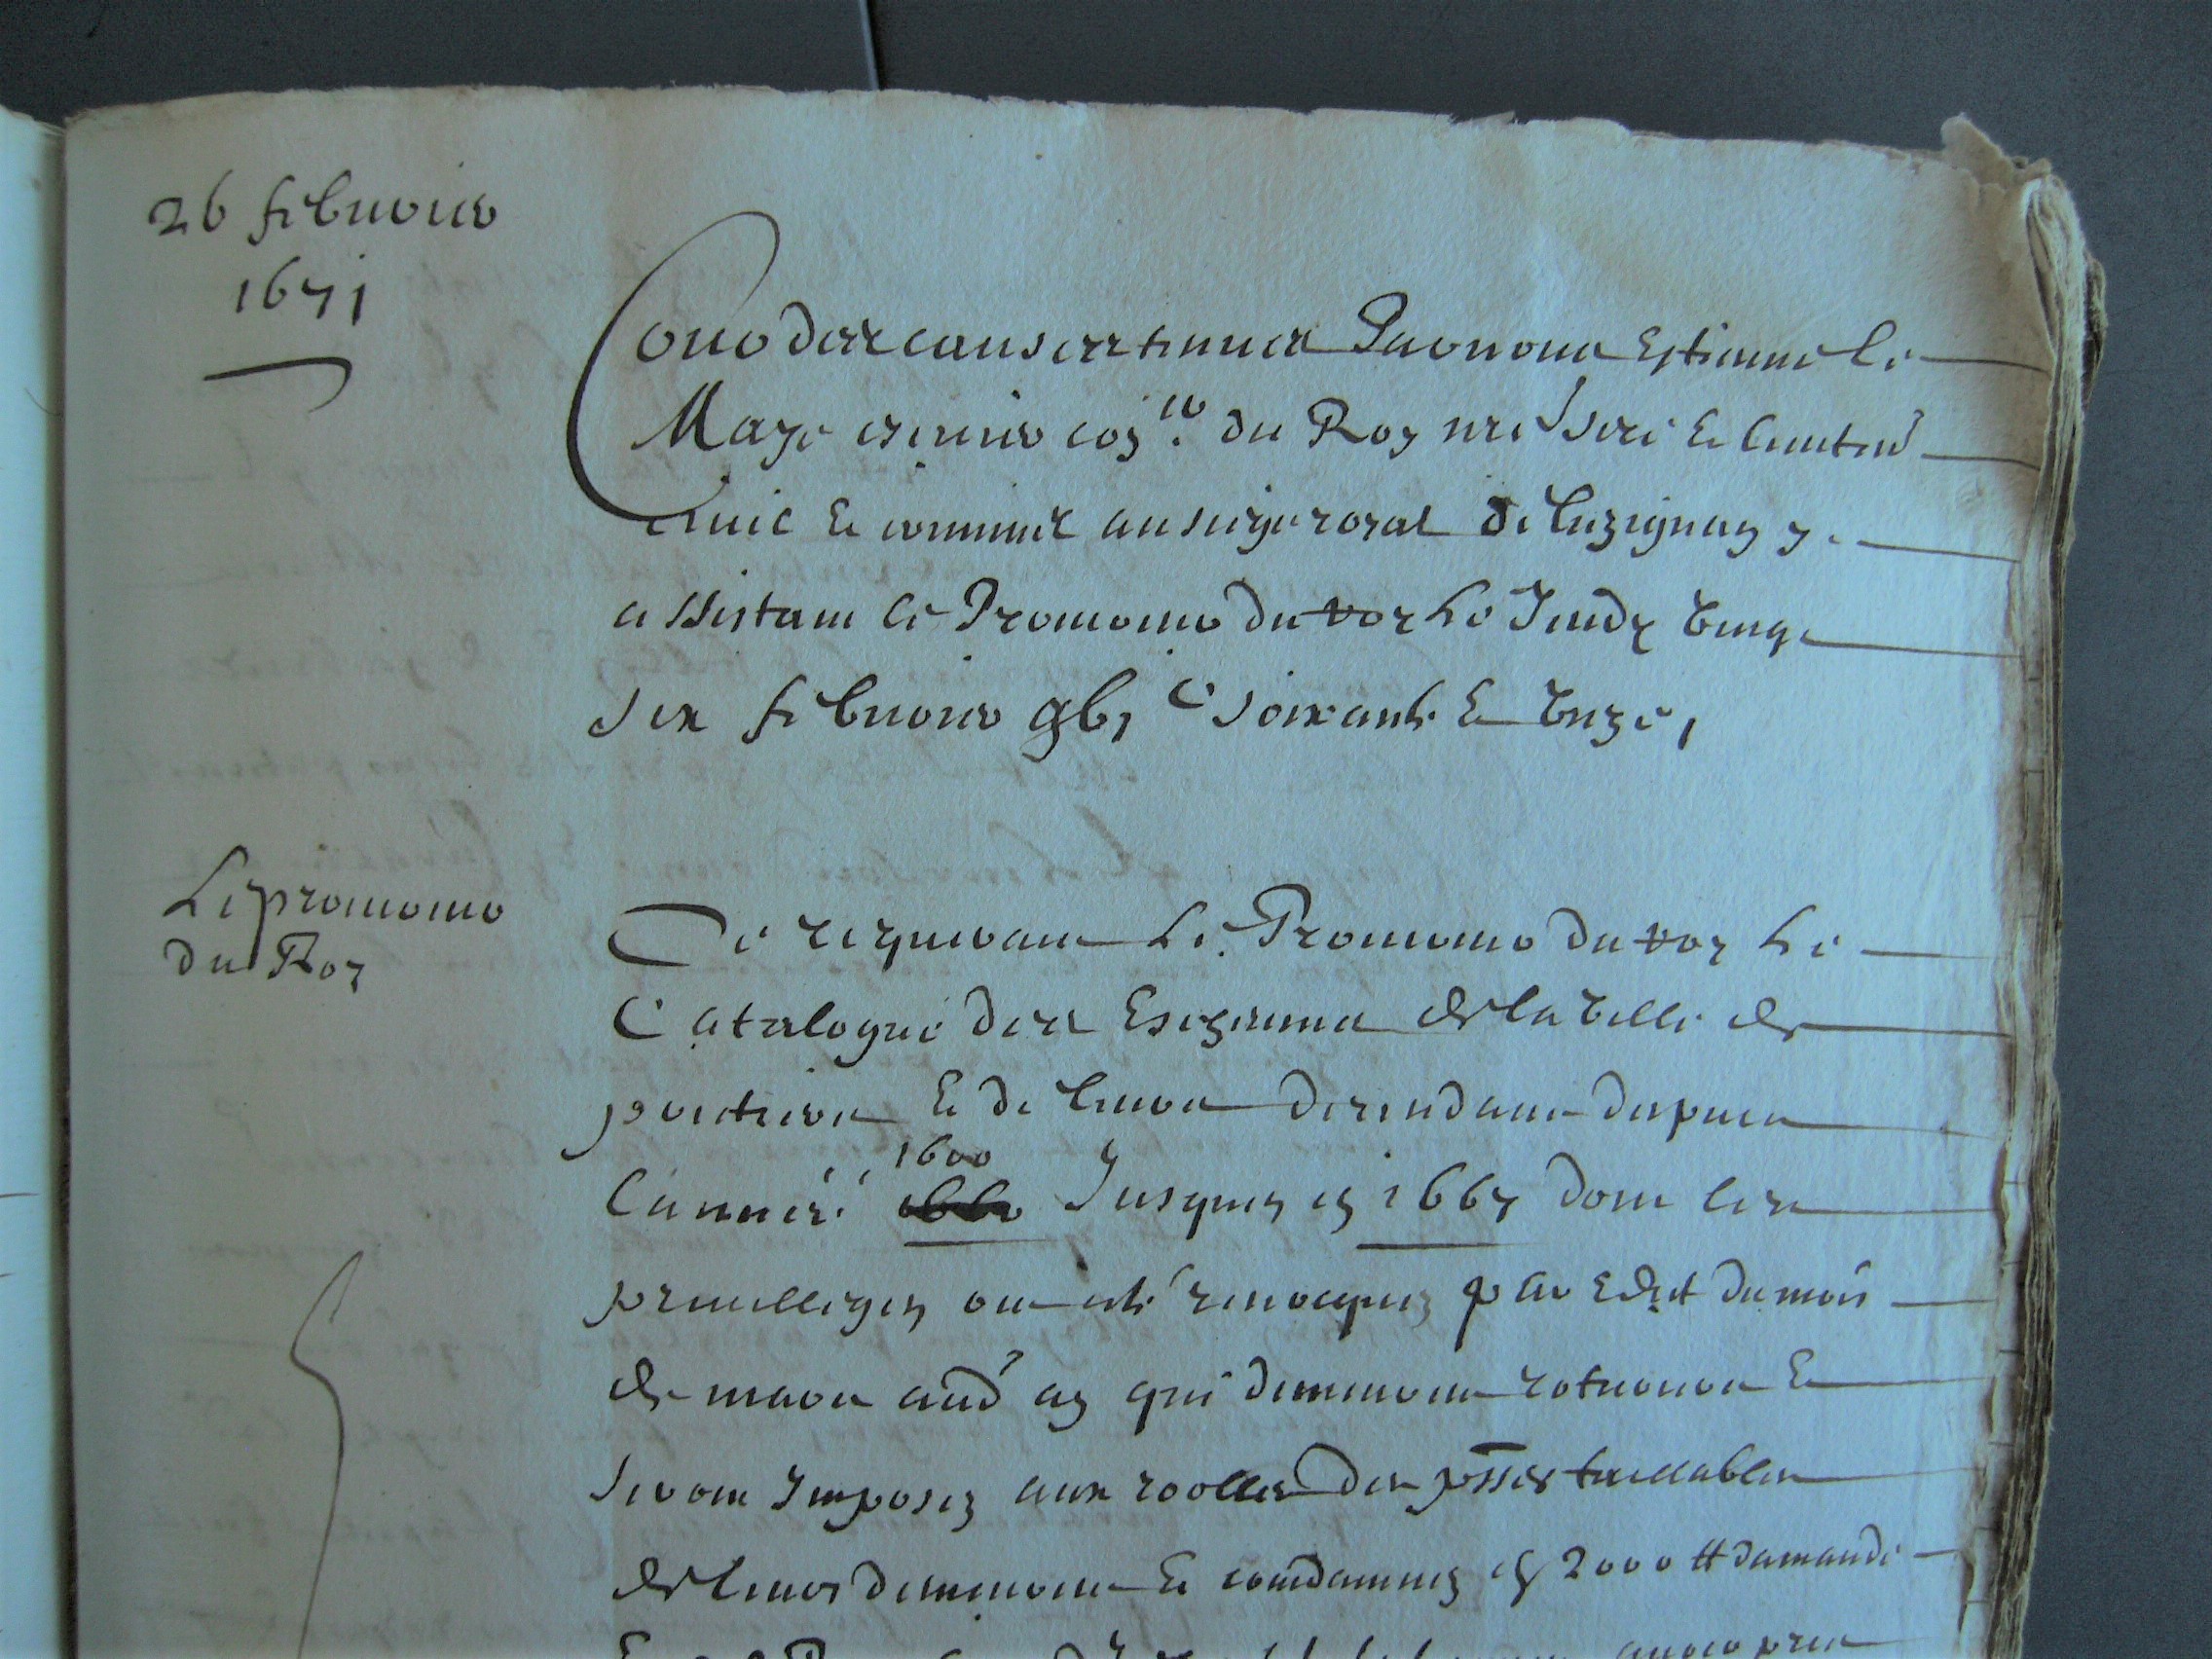 26 febvrier
1671
Cour des causes tenues Par nous Estienne le
Maye escuier coner du Roy nre sire & lieuten
civil & criminel au siege royal de luzignan y
assistant le Procureur du roy Le Jeudy vingt
six febvrier gbi c soixante & unze,
Le procureur
du Roy
Ce requerant Le Procureur du roy Le
Catalogue des Eschevins de la ville de
poictiers & de leurs descendans despuis
l'année 1600 Jusques en 1667 dont les
privilleges ont esté revocquez par Edict du mois
de mars aud an qui demeurent roturiers &
seront Imposez aux roolles des psses taillables
de leurs demeures & condamnez en 2000 # damande